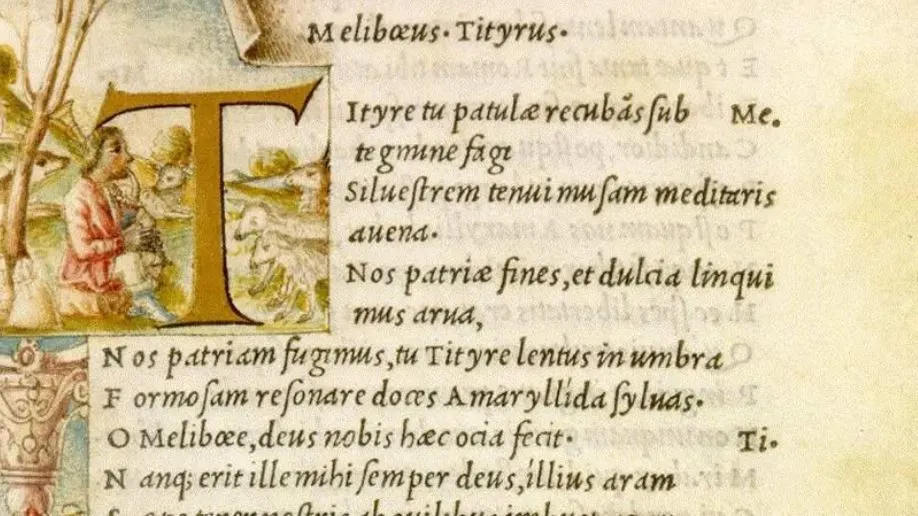 Melibœus. Tityrus.
TItyre tu patulæ recubãs ſub Me.
tegmine fagi
Silueſtrem tenui muſam meditaris
auena.
Nos patriæ fines, et dulcia linqui
mus arua,
Nos patriam fugimus, tu Tityre lentus in umbra
Formoſam reſonare doces Amaryllida ſyluas.
O Melibœe, deus nobis hæc ocia fecit. Ti.
Nanq; erit ille mihi ſemper deus, illius aram